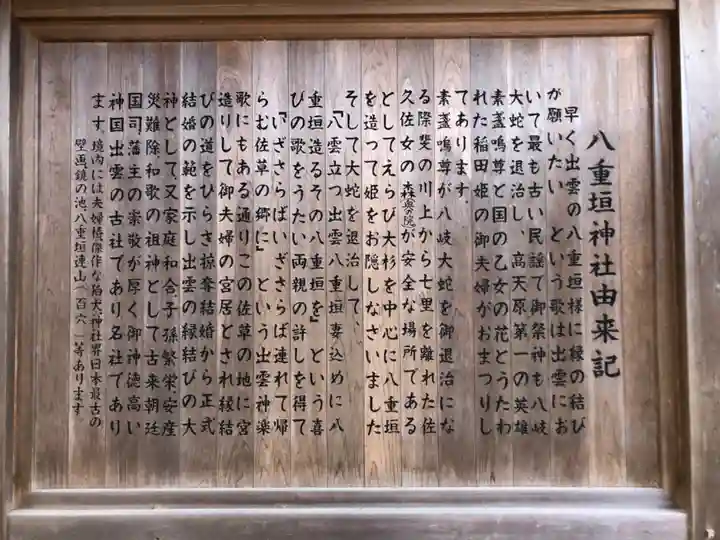 八重垣神社由来記
早く出雲の八重垣様に縁の結び
が願いたい という歌は出雲にお
いて最も古い民謡で御祭神も八岐
大蛇を退治し、高天原第一の英雄
素盞嗚尊と国の乙女の花とうたわ
れた稲田姫の御夫婦がおまつりし
てあります。
素盞嗚尊が八岐大蛇を御退治にな
る際斐の川上から七里を離れた佐
久佐女の森(奥の院)が安全な場所である
としてえらび大杉を中心に八重垣
を造って姫をお隠しなさいました
そして大蛇を退治して、
「八雲立つ出雲八重垣妻込めに八
重垣造るその八重垣を」という喜
びの歌をうたい両親の許しを得て
「いざさらばいざさらば連れて帰
らむ佐草の郷に」という出雲神楽
歌にもある通りこの佐草の地に宮
造りして御夫婦の宮居とされ縁結
びの道をひらき掠奪結婚から正式
結婚の範を示し出雲の縁結びの大
神として、又家庭和合子孫繁栄安産
災難除和歌の祖神として古来朝廷
国司藩主の崇敬が厚く御神徳高い
神国出雲の古社であり名社であり
ます。境内には夫婦椿傑作な狛犬、神社界日本最古の
壁画、鏡の池、八重垣連山(百六一)等あります